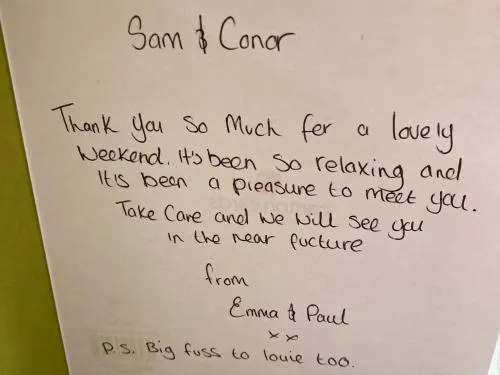 Sam & Conor
Thank you so much fer a lovely
Weekend. It's been so relaxing and
It's been a pleasure to meet you.
Take care and we will see you
in the near fucture
from
Emma & Paul
x x
P.S. Big fuss to louie too.